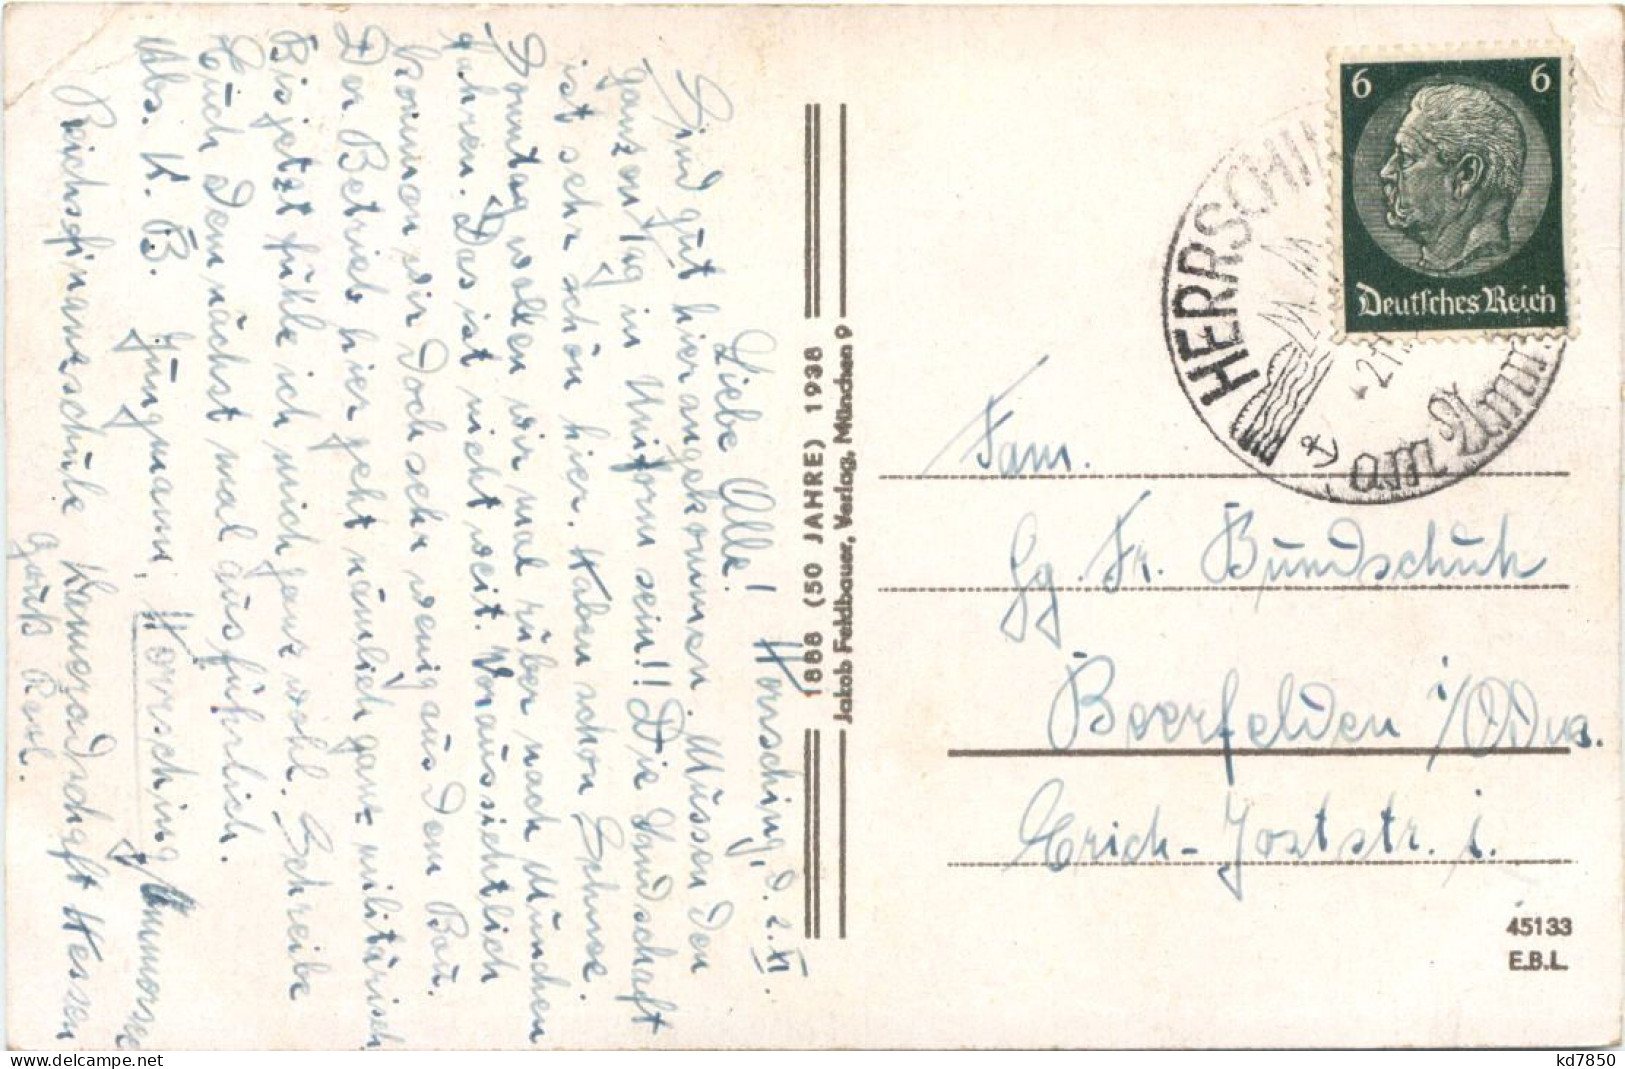 Herrsching, d. 2. XI.
Liebe Alle!
Sind gut hier angekommen. Müssen den
ganzen Tag in Uniform sein!! Die Landschaft
ist sehr schön hier. Haben schon Schnee.
Sonntag wollen wir mal rüber nach München
fahren. Das ist nicht weit. Voraussichtlich
kommen wir doch sehr wenig aus dem Bau.
Der Betrieb hier geht nämlich ganz militärisch
Bis jetzt fühle ich mich ganz wohl. Schreibe
Euch demnächst mal ausführlich.
Gruß
Abs. K. B. Jungmann, Herrsching Ammersee
Reichsfinanzschule Kameradschaft Hessen
1888 (50 JAHRE) 1938
Jakob Feldbauer, Verlag, München 9
6 6
Deutsches Reich
HERRSCHIN
am Amm
Fam.
Gg. Fr. Bundschuh
Beerfelden i/Odw.
Erich-Jostst­r. 1.
45133
E.B.L.
delcampe.net
kd7850